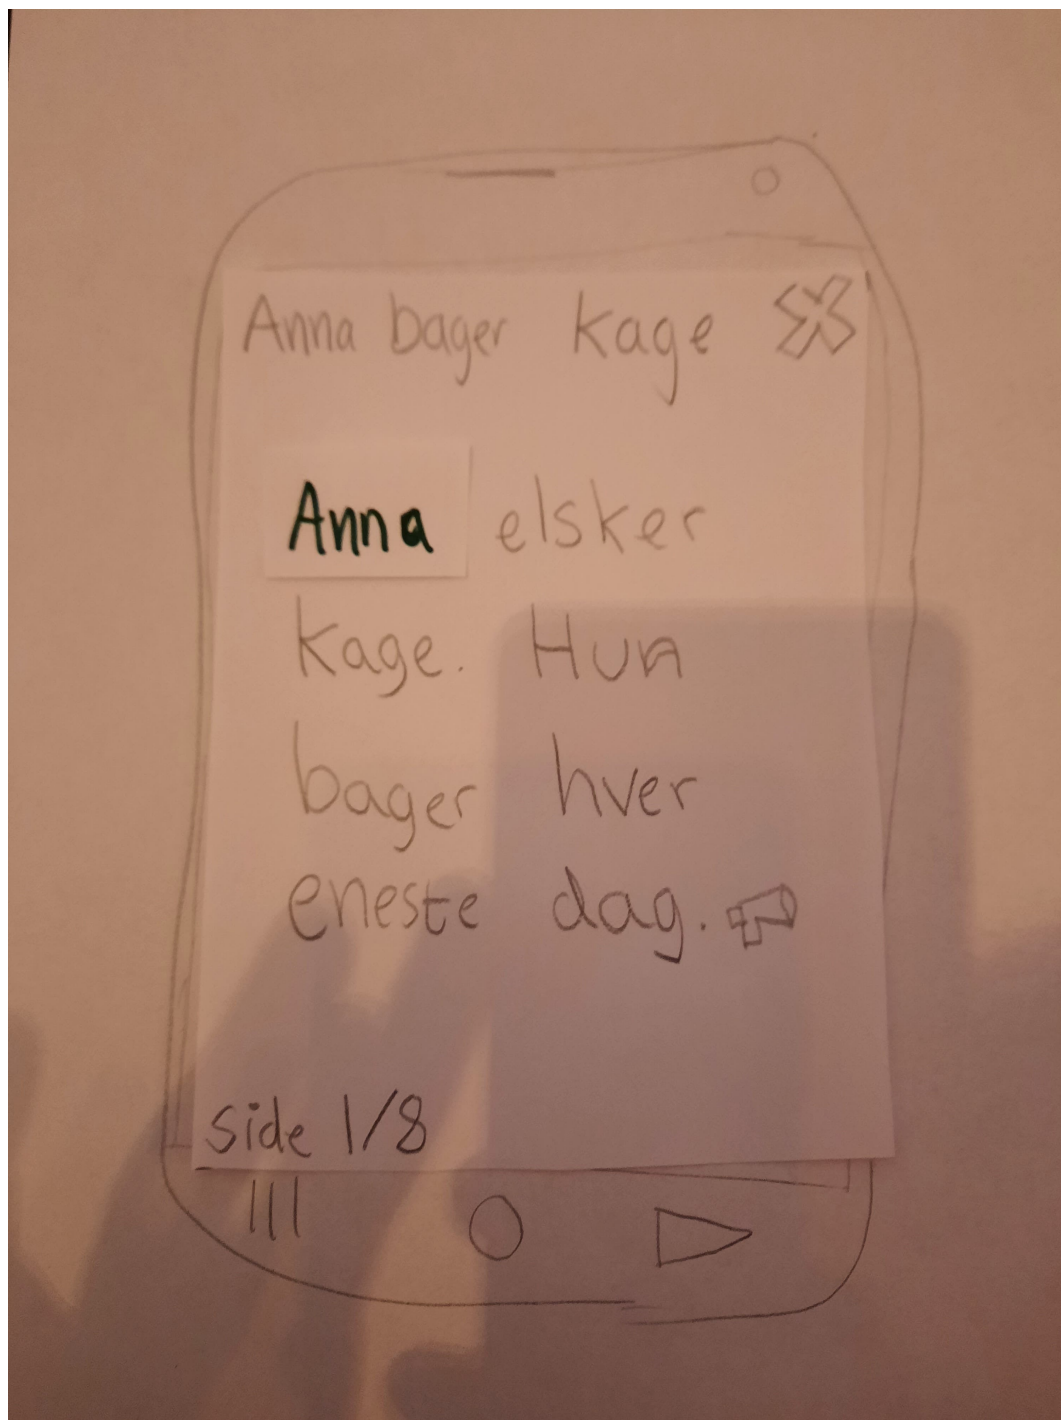 Anna bager kage
Anna elsker
kage. Hun
bager hver
eneste dag.
side 1/8